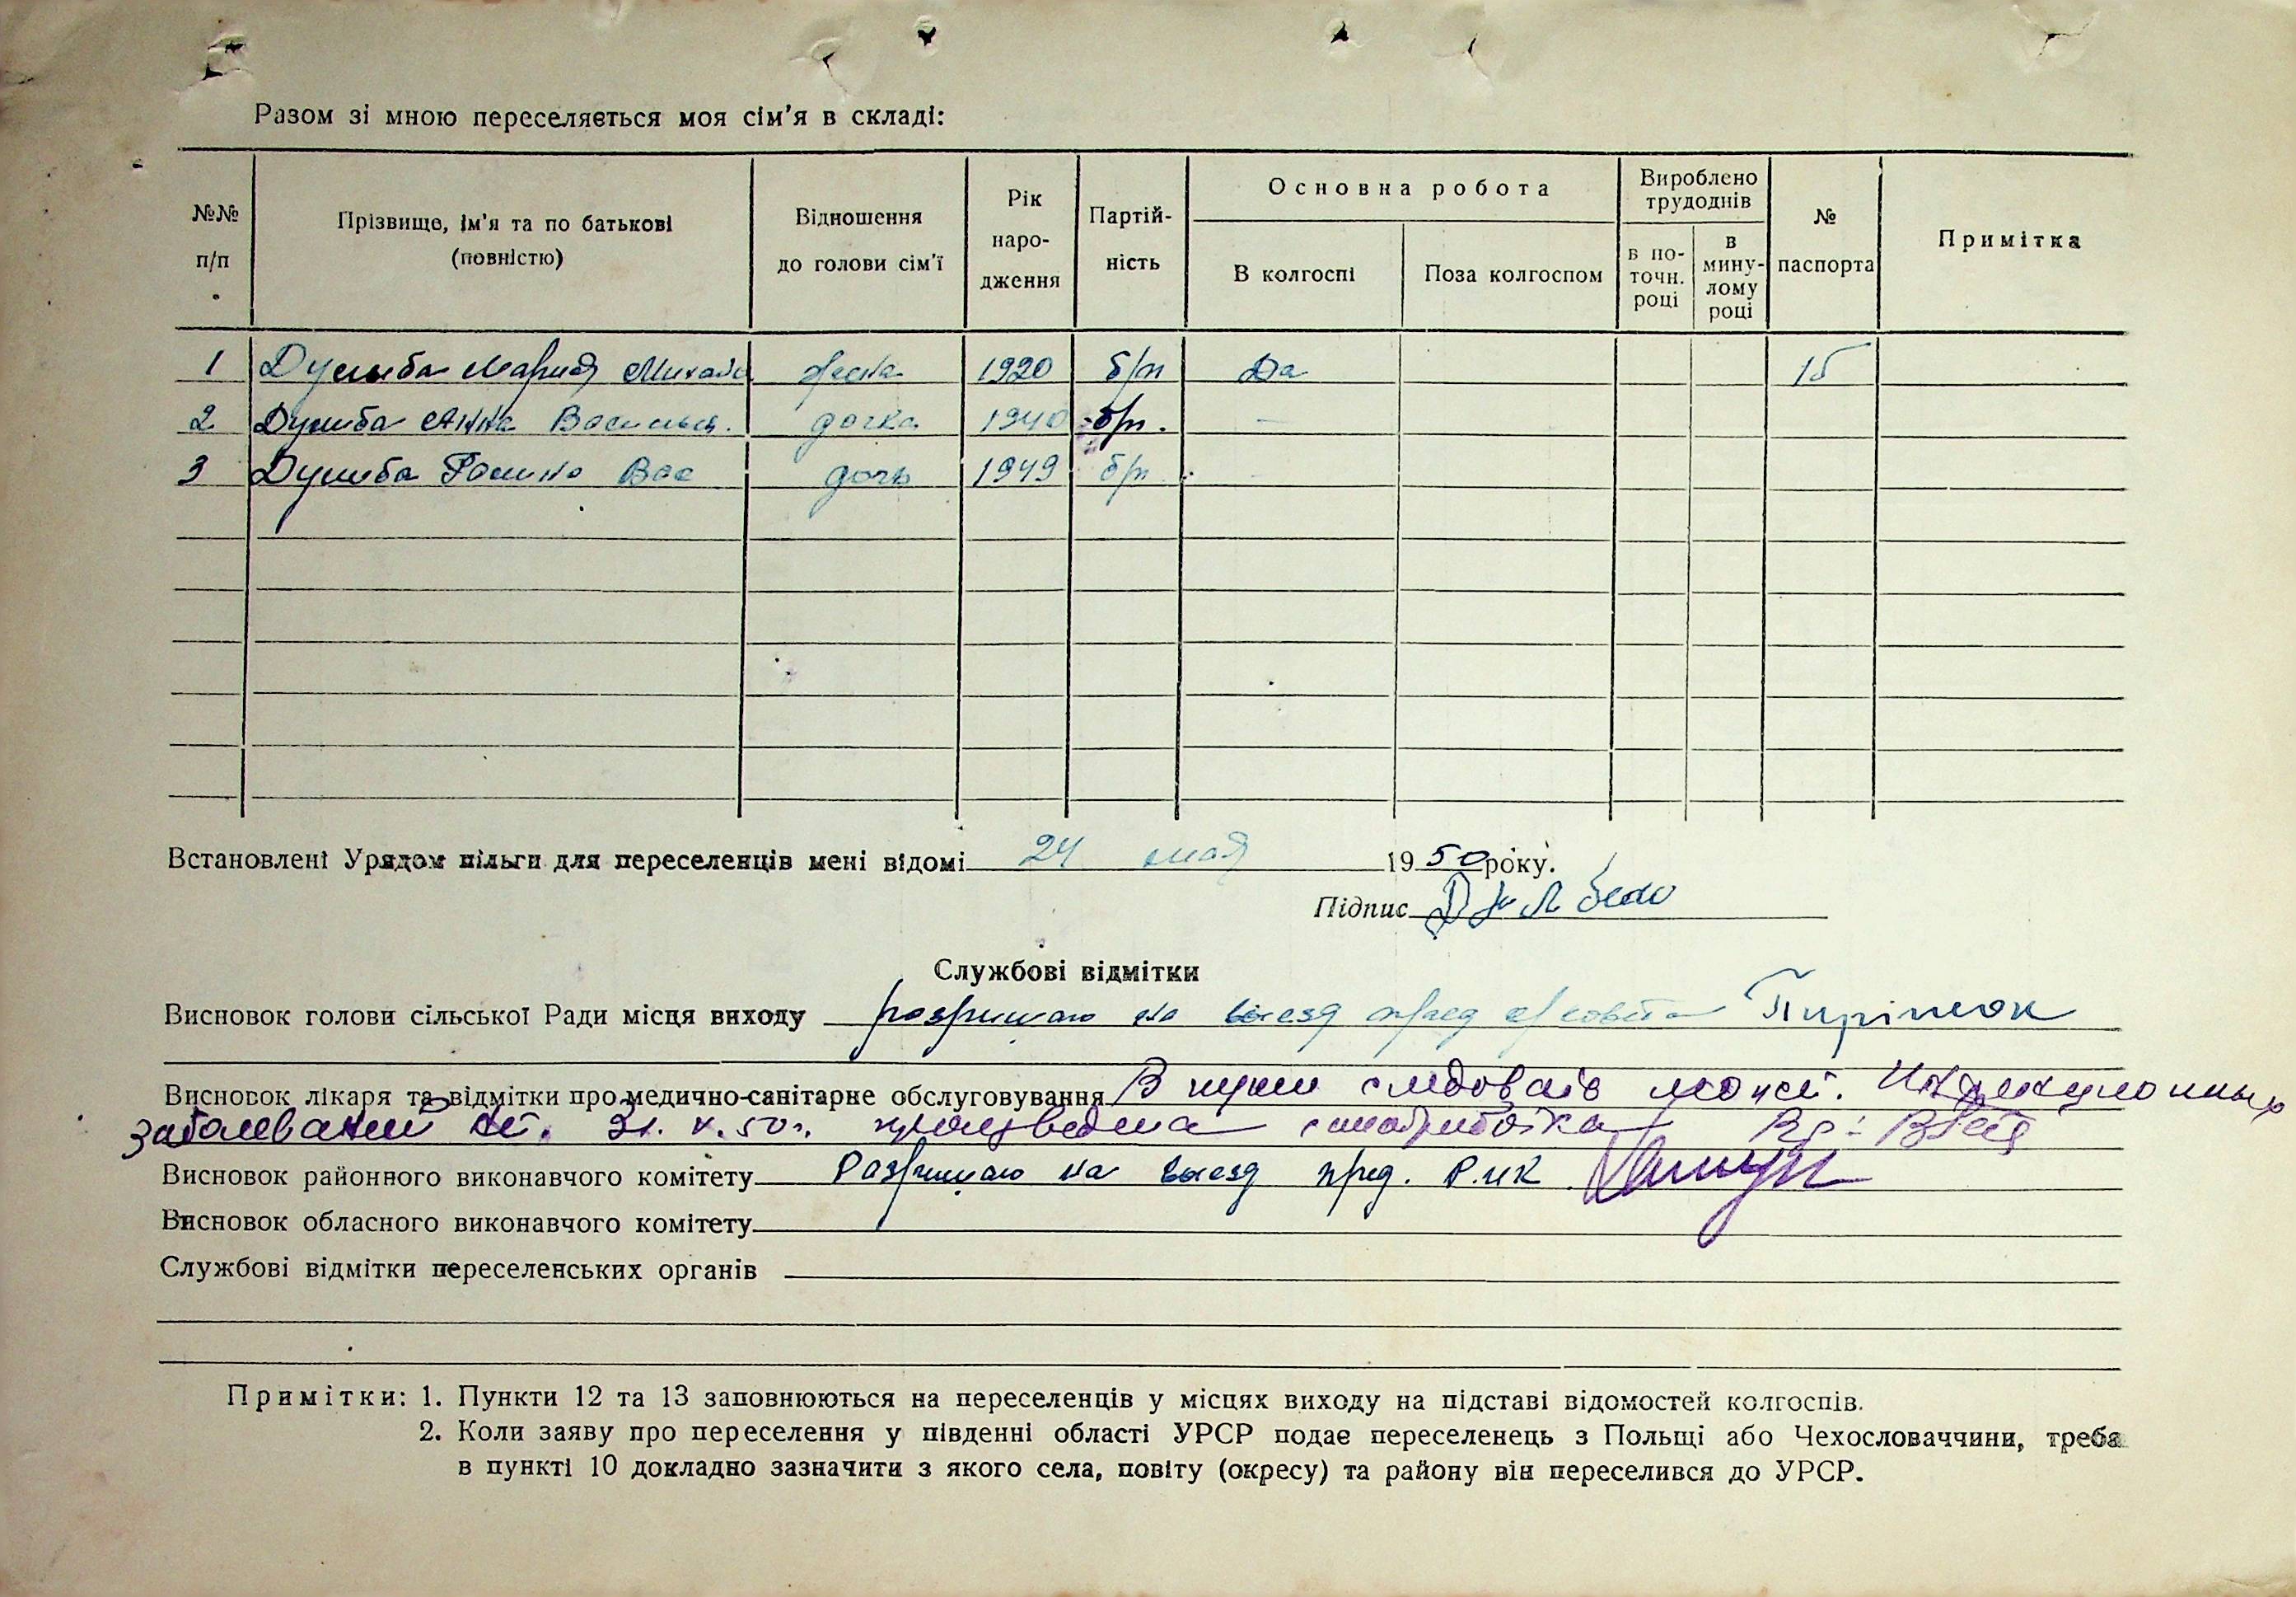 Разом зі мною переселяється моя сім'я в складі:
№№ п/п
Прізвище, ім'я та по батькові (повністю)
Відношення до голови сім'ї
Рік народження
Партійність
Основна робота
В колгоспі
Поза колгоспом
Вироблено трудоднів
в поточн. році
в минулому році
№ паспорта
Примітка
1 Дулыба Мария Михайл жена 1920 б/п Да 15
2 Дулыба Анна Васильев. дочка 1940 б/п.
3 Дулыба Галина Вас дочь 1949 б/п
Встановлені Урядом пільги для переселенців мені відомі 24 мая 1950 року.
Підпис
Службові відмітки
Висновок голови сільської Ради місця виходу разришаю на выезд пред с/совета
Висновок лікаря та відмітки про медично-санітарне обслуговування В пути следовать может. Инфекционных
заболеваний нет. 31. V. 50 г. произведена санобработка
Висновок районного виконавчого комітету Разришаю на выезд пред. Р.ик
Висновок обласного виконавчого комітету
Службові відмітки переселенських органів
Примітки: 1. Пункти 12 та 13 заповнюються на переселенців у місцях виходу на підставі відомостей колгоспів.
2. Коли заяву про переселення у південні області УРСР подає переселенець з Польщі або Чехословаччини, треба
в пункті 10 докладно зазначити з якого села, повіту (окресу) та району він переселився до УРСР.